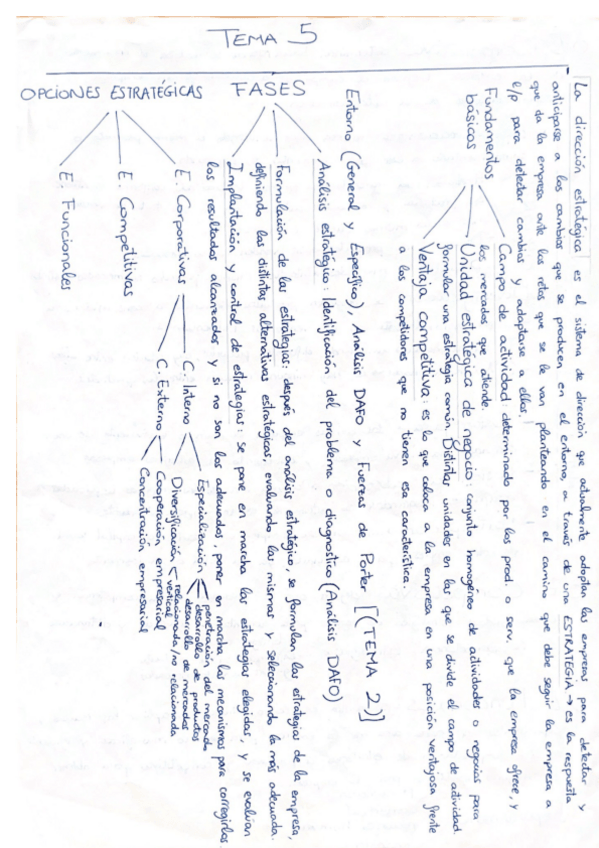 TEMA 5
La dirección estratégica es el sistema de dirección que actualmente adoptan las empresas para detectar y
anticiparse a los cambios que se producen en el entorno, a través de una ESTRATEGIA → es la respuesta
que da la empresa ante los retos que se le van planteando en el camino que debe seguir la empresa a
l/p para detectar cambios y adaptarse a ellos.
Fundamentos básicos
Campo de actividad determinado por los prod. o serv. que la empresa ofrece, y
los mercados que atiende.
Unidad estratégica de negocio: conjunto homogéneo de actividades o negocios para
formular una estrategia común. Distintas unidades en las que se divide el campo de actividad.
Ventaja competitiva: es lo que coloca a la empresa en una posición ventajosa frente
a los competidores que no tienen esa característica.
Entorno (General y Específico), Análisis DAFO y Fuerzas de Porter [(TEMA 2)]
FASES
Análisis estratégico: Identificación del problema o diagnostico (Análisis DAFO)
Formulación de las estrategias: después del análisis estratégico, se formulan las estrategias de la empresa,
definiendo las distintas alternativas estratégicas, evaluando las mismas y seleccionando la más adecuada.
Implantación y control de estrategias: se pone en marcha las estrategias elegidas, y se evalúan
los resultados alcanzados y si no son los adecuados, poner en marcha los mecanismos para corregirlas.
OPCIONES ESTRATÉGICAS
E. Corporativas
C. Interno
Especialización
penetración del mercado
desarrollo de productos
desarrollo de mercados
Diversificación
relacionada/no relacionada
vertical
C. Externo
Cooperación empresarial
Concentración empresarial
E. Competitivas
E. Funcionales